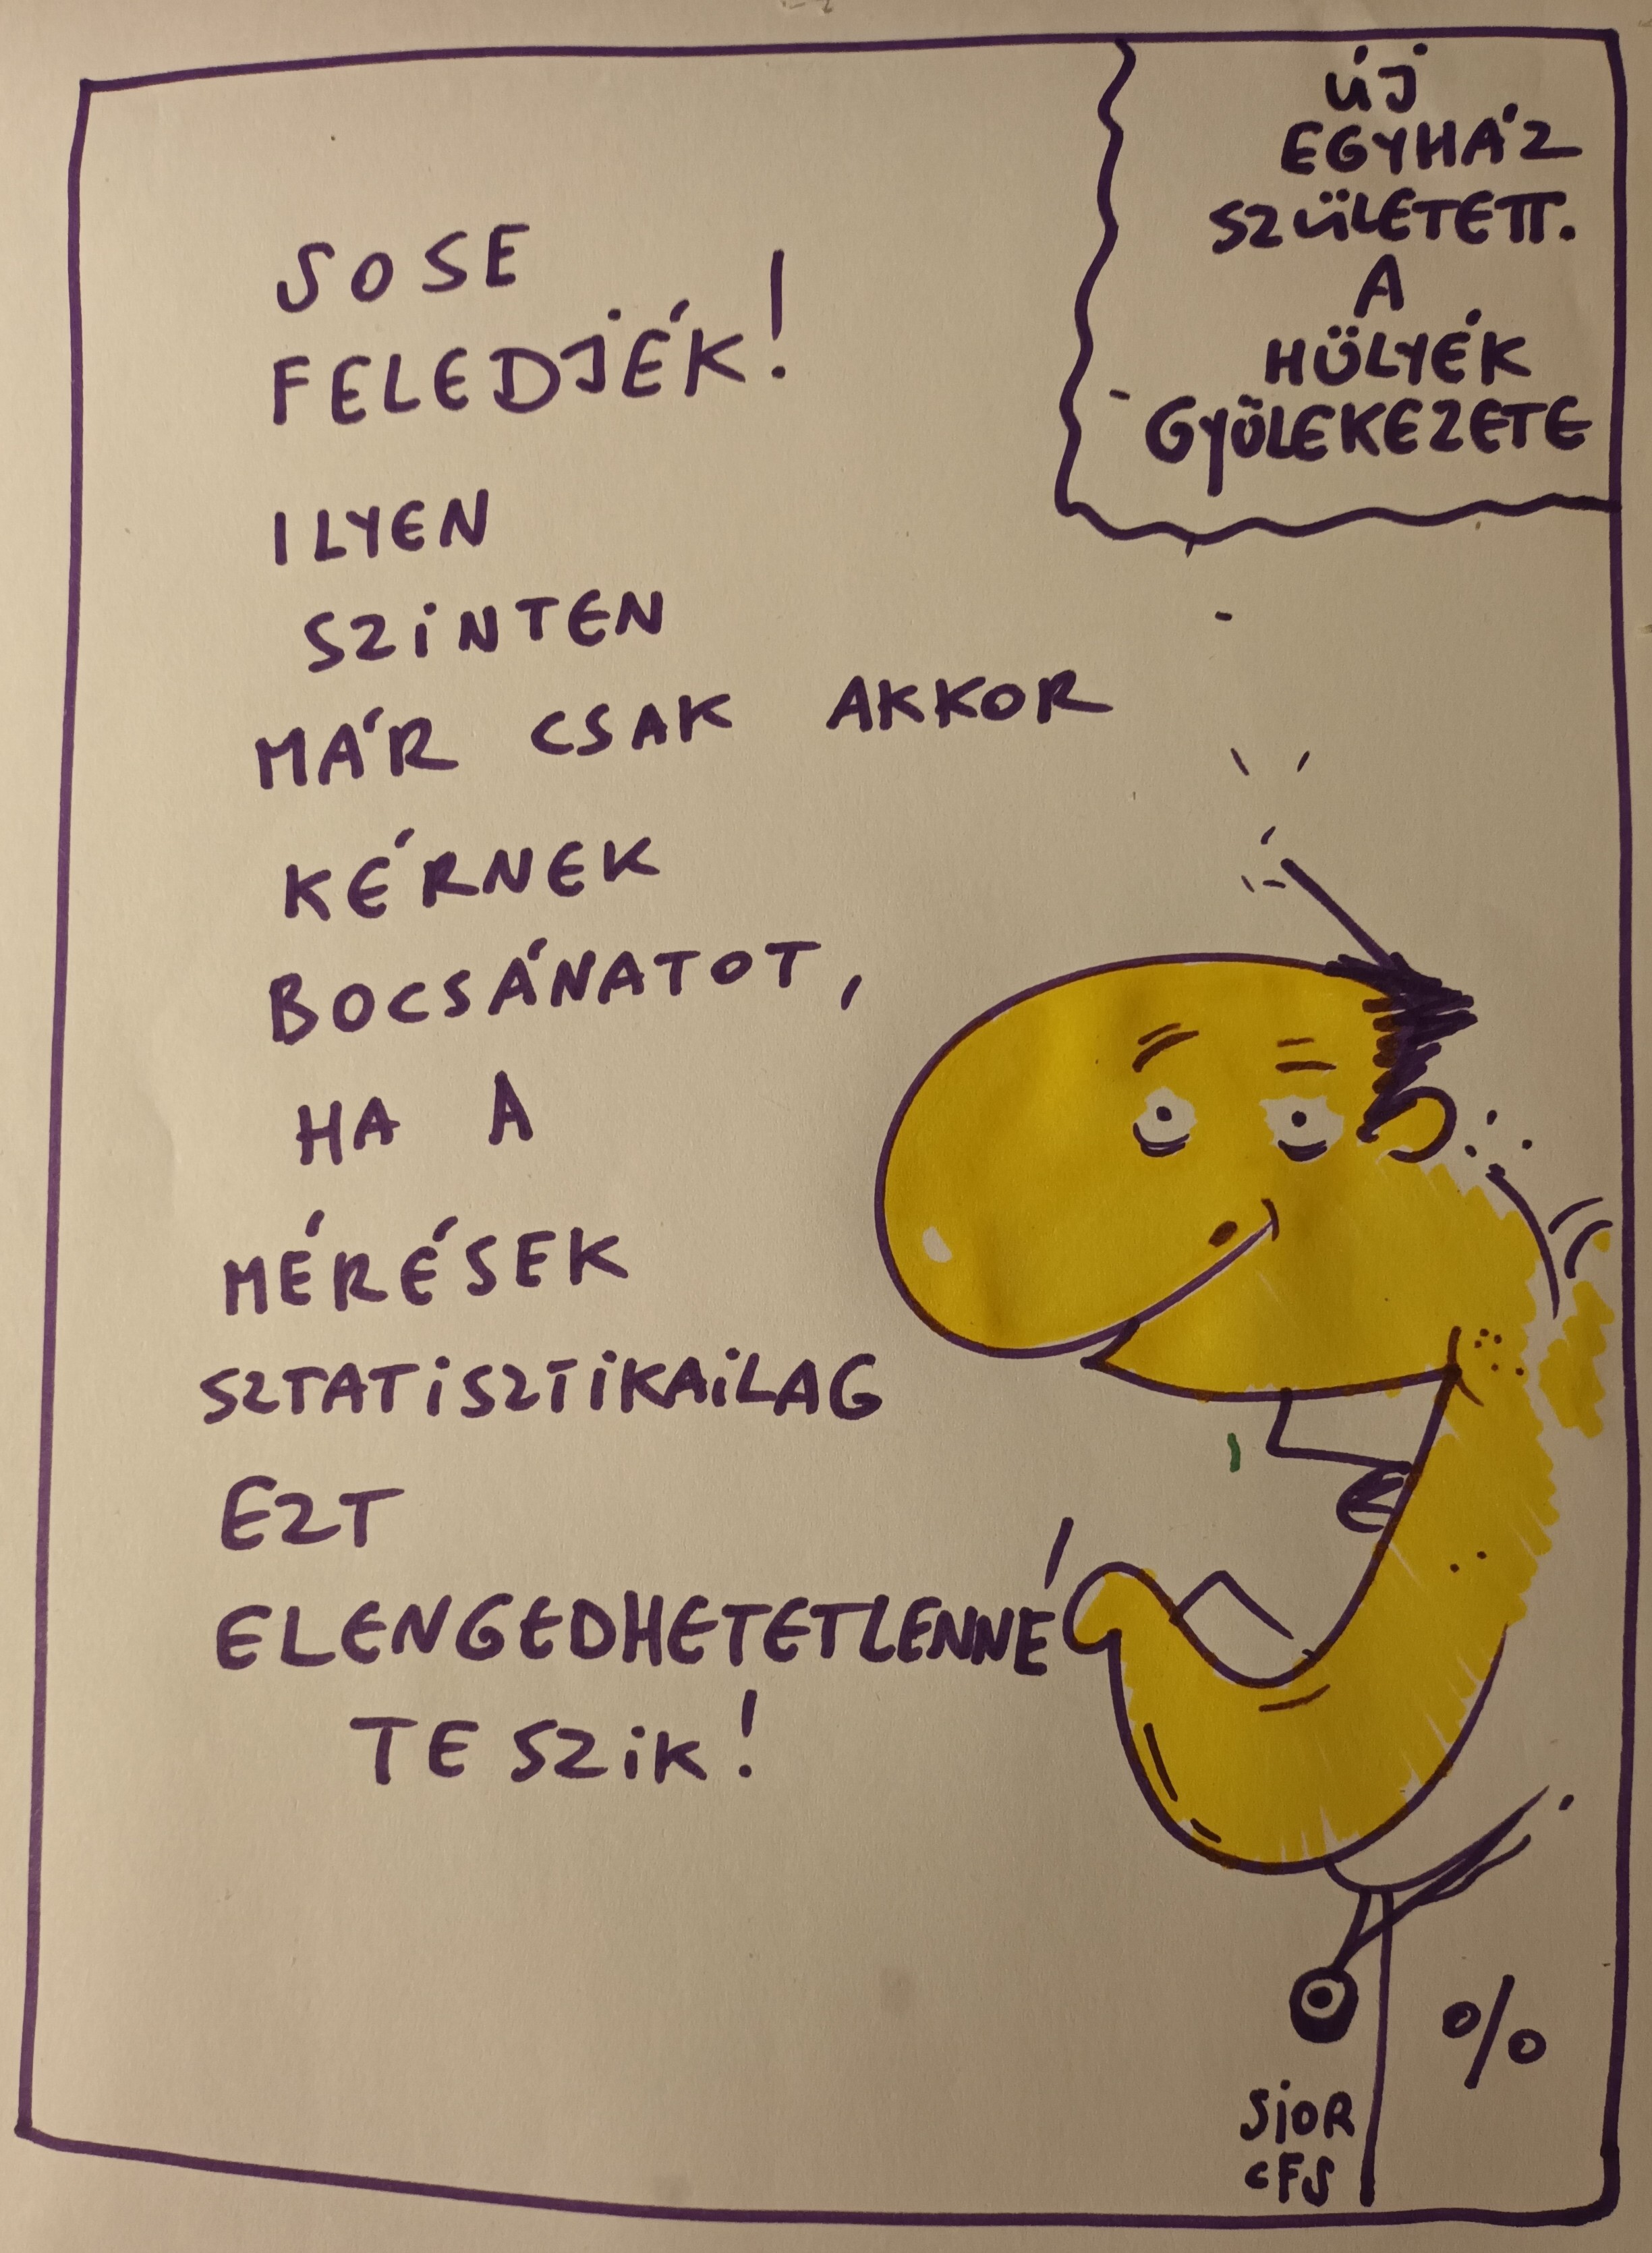 ÚJ
EGYHÁZ
SZÜLETETT.
A
HÜLYÉK
GYÜLEKEZETE
SOSE
FELEDJÉK!
ILYEN
SZINTEN
MÁR CSAK AKKOR
KÉRNEK
BOCSÁNATOT,
HA A
MÉRÉSEK
SZTATISZTIKAILAG
EZT
ELENGEDHETETLENNÉ
TESZIK!
%
SIOR
CFS